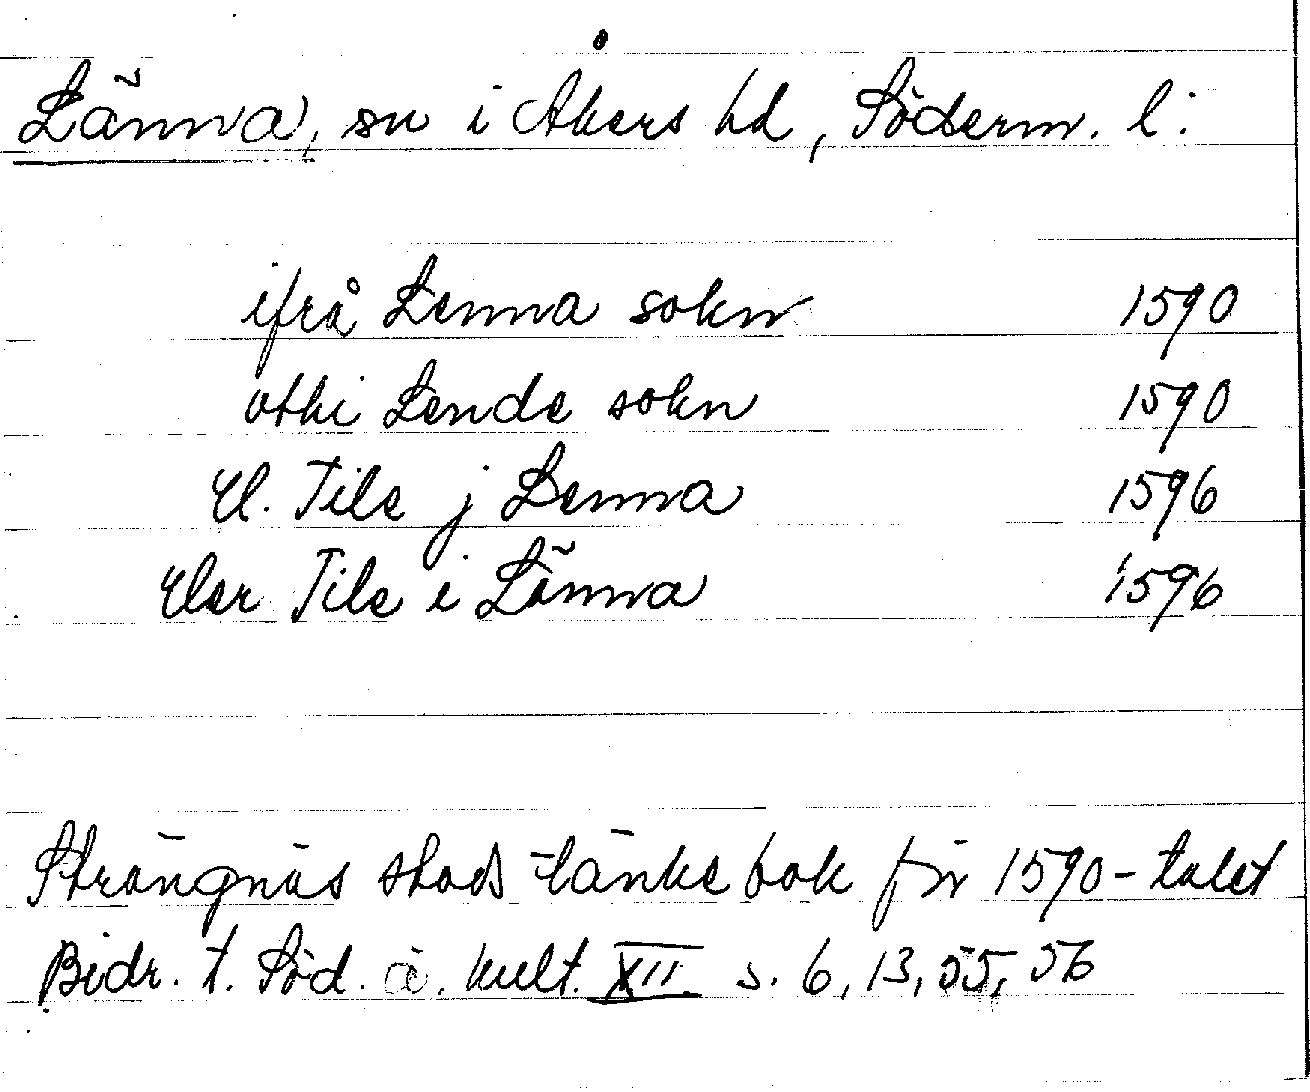 Länna, sn i Åkers hd, Söderm. l:
ifrå Lenna sokn 1590
vthi Lende sokn 1590
El. Tile j Lenna 1596
Eler Tile i Länna 1596
Strängnäs stads tänkebok för 1590-talet
Bidr. t. Söd. ä. kult. XII. s. 6, 13, 55, 56